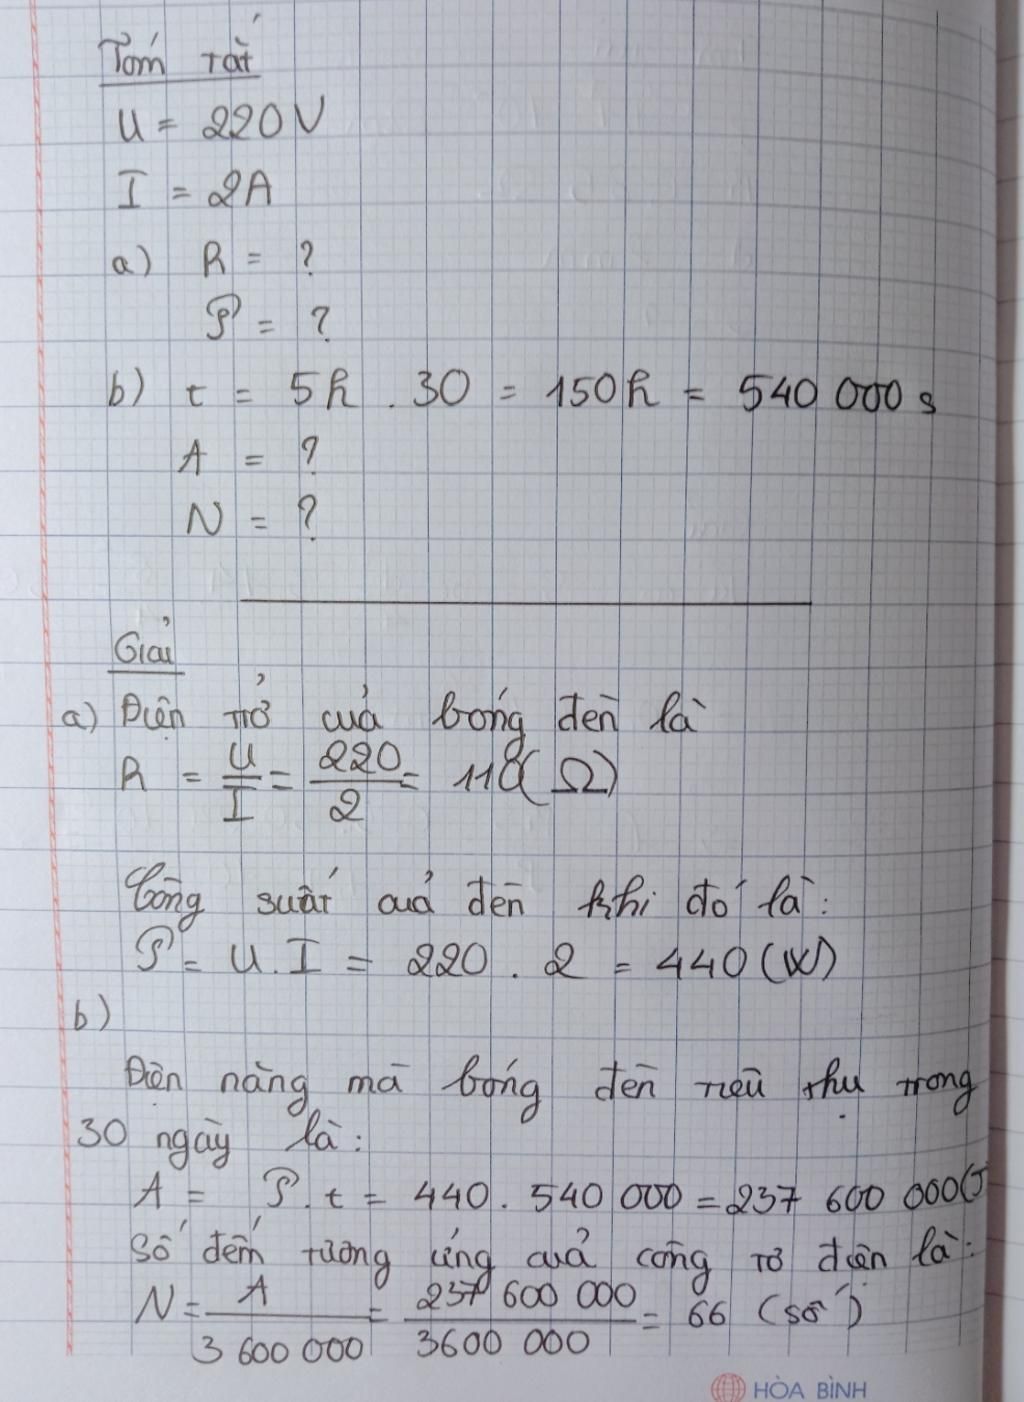 Tóm tắt
U = 220V
I = 2A
a) R = ?
P = ?
b) t = 5h . 30 = 150h = 540 000 s
A = ?
N = ?
Giải
a) Điện trở của bóng đèn là
R = U/I = 220/2 = 110 (Ω)
Công suất của đèn khi đó là:
P = U.I = 220 . 2 = 440 (W)
b)
Điện năng mà bóng đèn tiêu thụ trong
30 ngày là:
A = P.t = 440 . 540 000 = 237 600 000 (J
Số đếm tương ứng của công tơ điện là:
N = A/3 600 000 = 237 600 000/3600 000 = 66 (số)
HÒA BÌNH